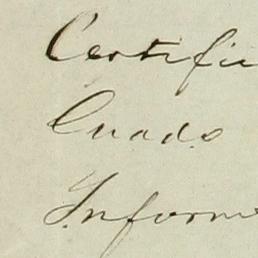 Certifi
Quads
Inform